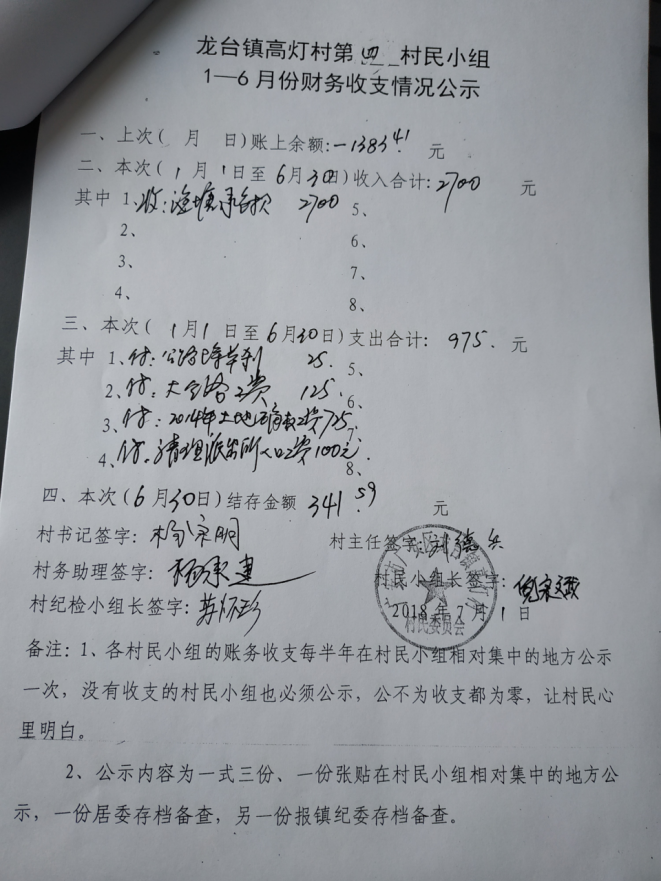 龙台镇高灯村第四 村民小组
1—6月份财务收支情况公示
一、上次( 月 日)账上余额:-1383.41 元
二、本次(1月1日至6月30日)收入合计:2700 元
其中 1、收:渔塘承包款 2700 5、
2、 6、
3、 7、
4、 8、
三、本次(1月1日至6月30日)支出合计: 975. 元
其中 1、付:公路 25. 5、
2、付: 路工费 125. 6、
3、付:2014年土地 工费725. 7、
4、付.清理派出所人口工费100元. 8、
四、本次(6月30日)结存金额 341.59 元
村书记签字: 村主任签字:刘德兵
村务助理签字: 村民小组长签字:
村纪检小组长签字: 2018年7月1日
村民委员会
备注:1、各村民小组的账务收支每半年在村民小组相对集中的地方公示
一次,没有收支的村民小组也必须公示,公不为收支都为零,让村民心
里明白。
2、公示内容为一式三份、一份张贴在村民小组相对集中的地方公
示,一份居委存档备查,另一份报镇纪委存档备查。